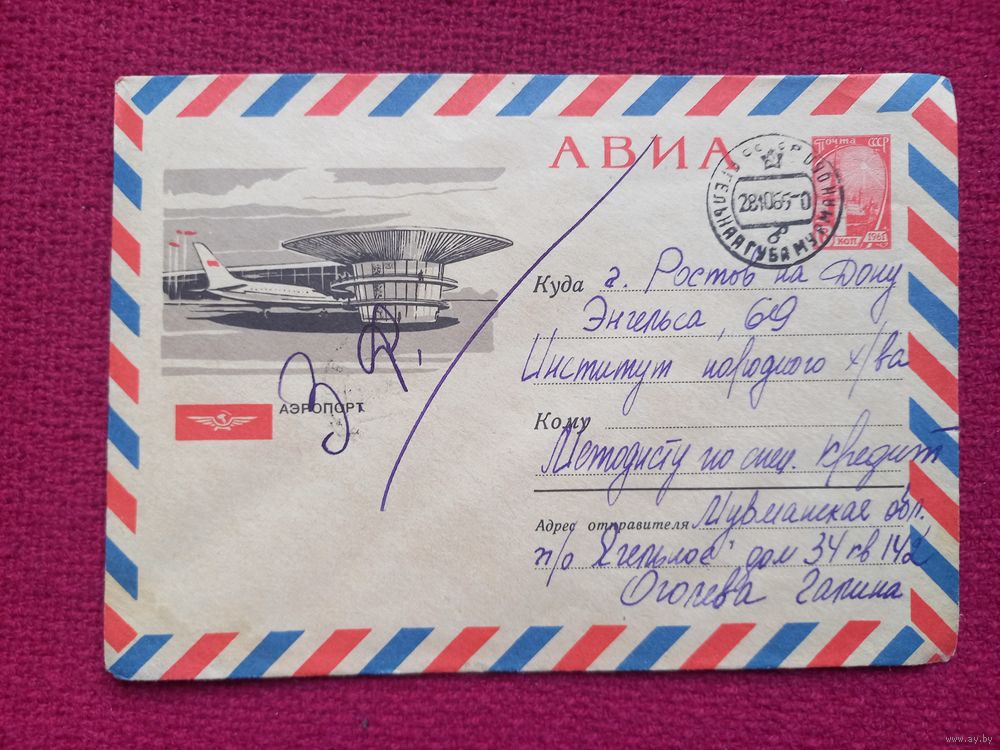 АВИА
Почта СССР
КОП 1961
СССР
281066-0
ЯГЕЛЬНАЯ ГУБА МУРМАН
Куда г. Ростов на Дону
Энгельса, 69
Институт народного х/ва
Кому
Методисту по спец. кредит
Адрес отправителя Мурманская обл.
п/о "Ягельное" дом 34 кв 142
Галина
З Ф,
АЭРОПОРТ
www.ay.by